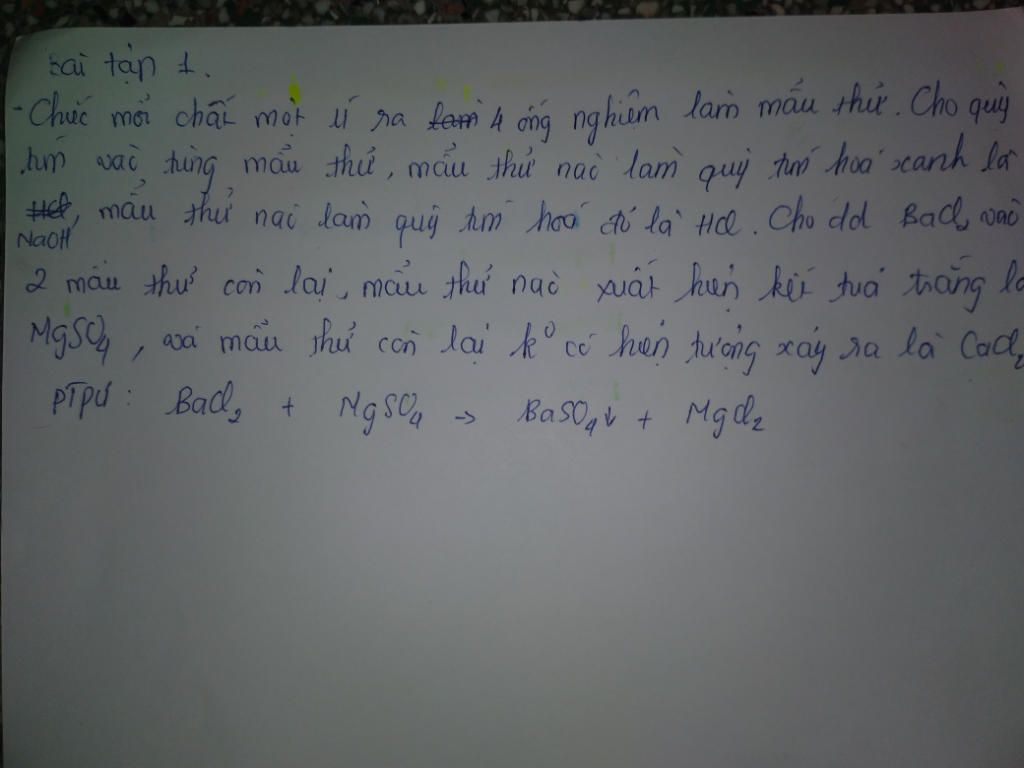 Bài tập 1.
- Chiếc mỗi chất một ít ra làm 4 ống nghiệm làm mẫu thử. Cho quỳ
tím vào từng mẫu thử, mẫu thử nào làm quỳ tím hoá xanh là
HCl, mẫu thử nào làm quỳ tím hoá đỏ là HCl. Cho dd BaCl2 vào
NaOH
2 mẫu thử còn lại, mẫu thử nào xuất hiện kết tủa trắng là
MgSO4, và mẫu thử còn lại k° có hiện tượng xảy ra là CaCl2
PTPƯ: BaCl2 + MgSO4 -> BaSO4↓ + MgCl2